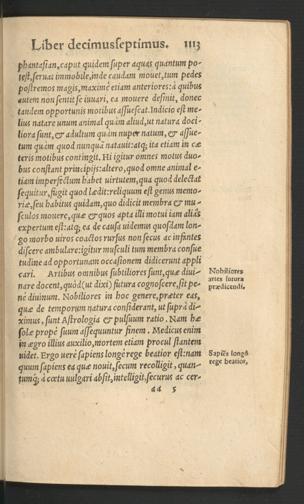 Liber decimusseptimus. 1113
phantasian, caput quidem super aquas quantum po-
test, seruat immobile, inde caudam mouet, tum pedes
postremos magis, maximè etiam anteriores: à quibus
autem non sentit se iuuari, ea mouere desinit, donec
tandem opportunis motibus assuescat. Indicio est me-
lius natare unum animal quàm aliud, ut natura doci-
liora sunt, & adultum quàm nuper natum, & assue-
tum quàm quod nunquã natauit: atq; ita etiam in cæ
teris motibus contingit. Hi igitur omnes motus duo-
bus constant principijs: altero, quod omne animal e-
tiam imperfectum habet uirtutem, qua quod delectat
sequitur, fugit quod lædit: reliquum est genus memo-
riæ, seu habitus quidam, quo didicit membra & mu-
sculos mouere, quæ & quos apta illi motui iam aliâs
expertum est: atq; ea de causa uidemus quosdam lon-
go morbo uiros coactos rursus non secus ac infantes
discere ambulare: igitur musculi tum membra consue
tudine ad opportunam occasionem didicerunt appli
cari. Artibus omnibus subtiliores sunt, quæ diui-
nare docent, quòd (ut dixi) futura cognoscere, sit pe-
nè diuinum. Nobiliores in hoc genere, præter eas,
quæ de temporum natura considerant, ut suprà di-
ximus, sunt Astrologia & pulsuum ratio. Nam hæ
solæ propè suum assequuntur finem. Medicus enim
in ægro illius auxilio, mortem etiam procul stantem
uidet. Ergo uerè sapiens longè rege beatior est: nam
quum sapiens ea quæ nouit, secum recolligit, quan-
tumq; à cœtu uulgari absit, intelligit, securus ac cer-
dd 5
Nobiliores
artes futura
prædicendi.
Sapiẽs longè
rege beatior.